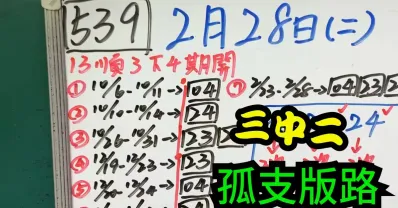 539 2月28日(二)
13順3下4期開
① 10/6-10/11→04
② 10/10-10/14→24
③ 10/26-10/31→23
④ 12/19-12/23→23
⑤ 12/20-12/24→04
⑦ 2/23-2/28→04 23 2
24
三中二
孤支版路